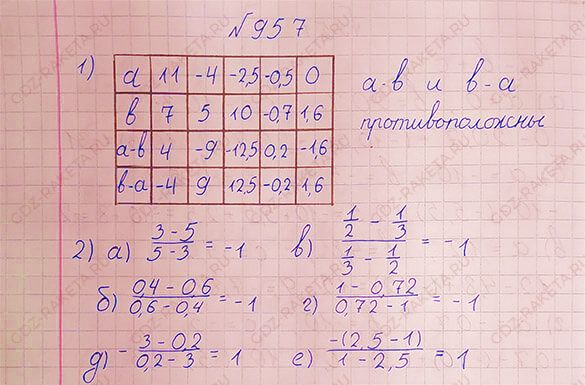 №957
1)
a 11 -4 -2,5 -0,5 0
в 7 5 10 -0,7 1,6
a-в 4 -9 -12,5 0,2 -1,6
в-a -4 9 12,5 -0,2 1,6
a-в и в-a
противоположны
2) а) (3-5)/(5-3) = -1
в) (1/2 - 1/3)/(1/3 - 1/2) = -1
б) (0,4-0,6)/(0,6-0,4) = -1
г) (1-0,72)/(0,72-1) = -1
д) -(3-0,2)/(0,2-3) = 1
е) -(2,5-1)/(1-2,5) = 1
GDZ-RAKETA.RU